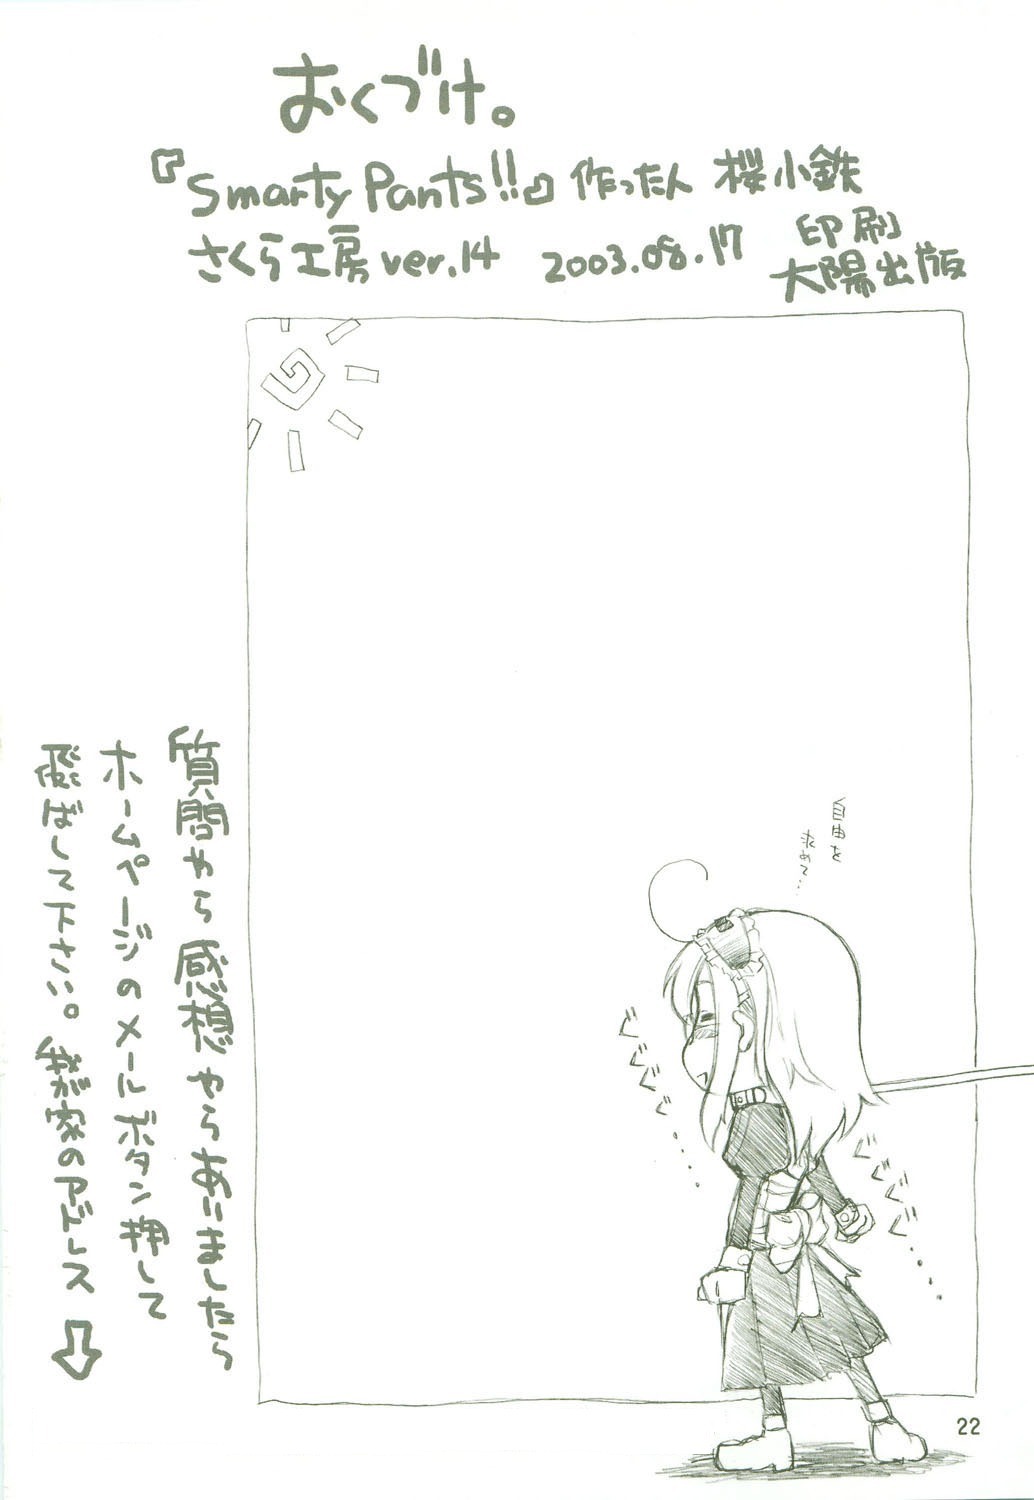 おくづけ。
『Smarty Pants!!』作ったん 桜小鉄
さくら工房 ver.14 2003.08.17 印刷
大陽出版
自由を
求めて…
ぐぐぐぐ・・・・
ぐぐぐぐ・・・・
質問やら感想やらありましたら
ホームページのメールボタン押して
飛ばして下さい。我が家のアドレス⇩
22